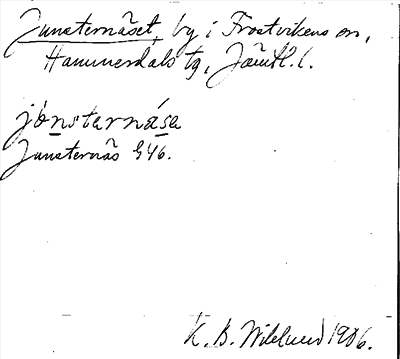 Junsternäset, by i Frostvikens sn,
Hammerdals tg, Jämtl. l.
jónstarnása
Junsternäs G46.
K. B. Wiklund 1906.